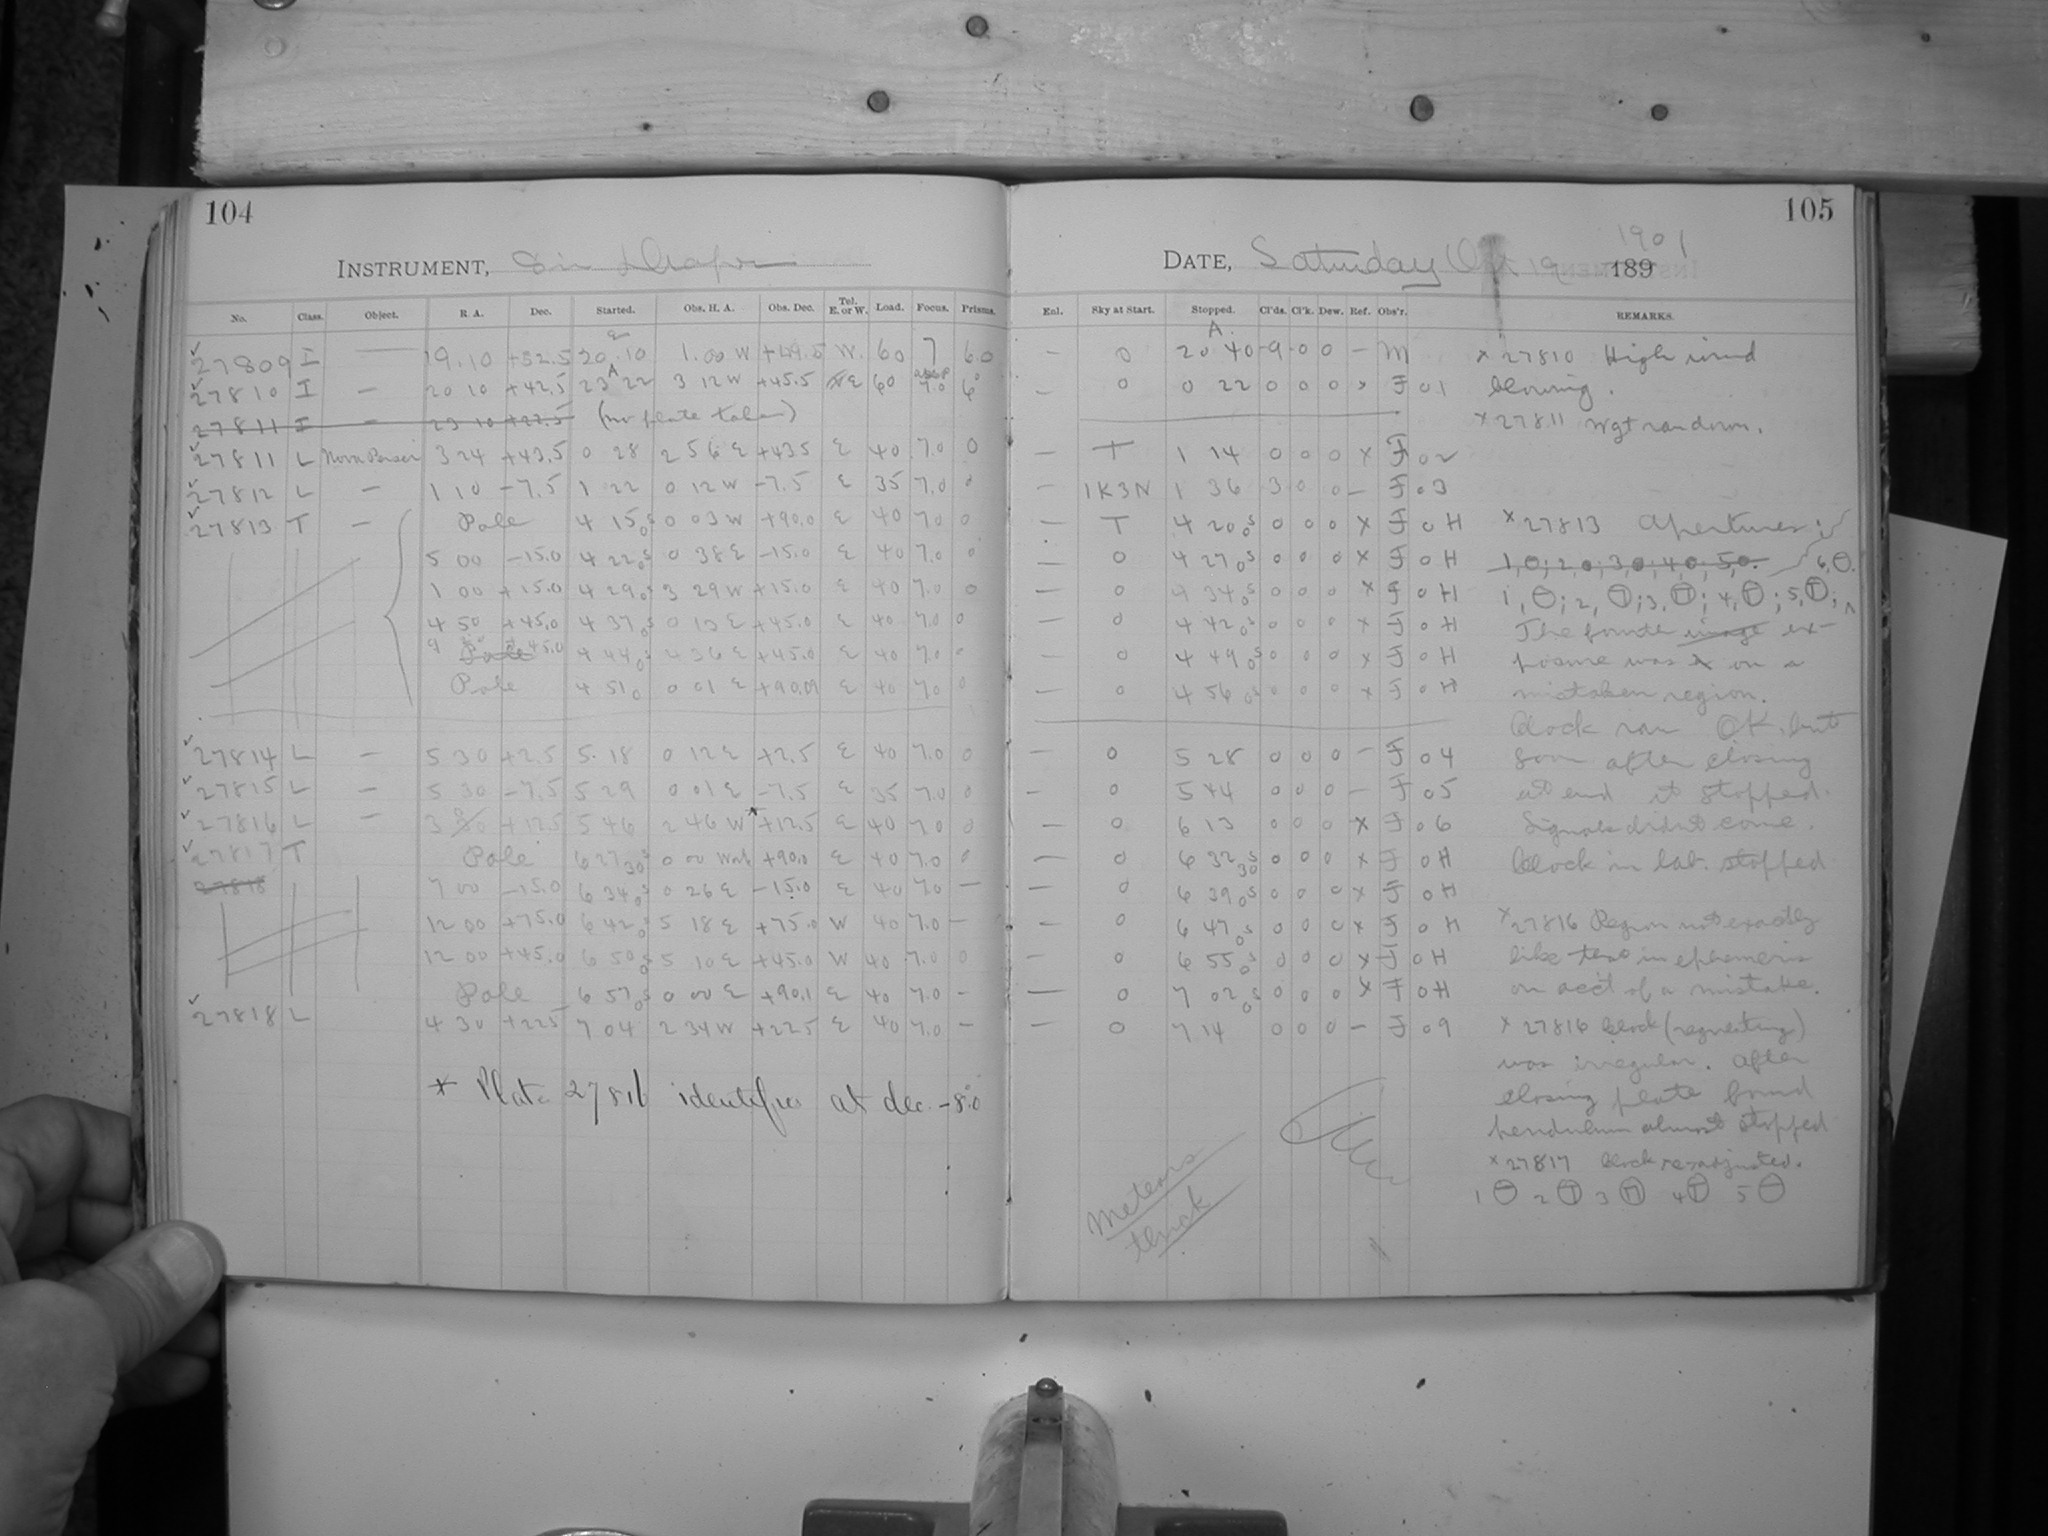 104
INSTRUMENT,
No. Class. Object. R. A. Dec. Started. Obs. H. A. Obs. Dec. Tel. E. or W. Load. Focus. Prisms.
27809 I — 19.10 +52.5 20.10 1.00 W +49.5 W. 60 7 60
27810 I — 20 10 +42.5 23 22 3 12 W +45.5 E 60 7.0 6
27811 I — 23 10 +22.5 (no plate taken)
27811 L Nova Persei 3 24 +43.5 0 28 2 56 E +43.5 E 40 7.0 0
27812 L — 1 10 -7.5 1 22 0 12 W -7.5 E 35 7.0 0
27813 T — Pole 4 15 0s 0 03 W +90.0 E 40 7.0 0
5 00 -15.0 4 22 0s 0 38 E -15.0 E 40 7.0 0
1 00 +15.0 4 29 0s 3 29 W +15.0 E 40 7.0 0
4 50 +45.0 4 37 0s 0 13 E +45.0 E 40 7.0 0
9 +45.0 4 44 0s 4 36 E +45.0 E 40 7.0 0
Pole 4 51 0 0 01 E +90.0 E 40 7.0 0
27814 L — 5 30 +2.5 5.18 0 12 E +2.5 E 40 7.0 0
27815 L — 5 30 -7.5 5 29 0 01 E -7.5 E 35 7.0 0
27816 L — 3 +12.5 5 46 2 46 W * +12.5 E 40 7.0 0
27817 T Pole 6 27 30s 0 00 W +90.0 E 40 7.0 0
27818 7 00 -15.0 6 34 0s 0 26 E -15.0 E 40 7.0 —
12 00 +75.0 6 42 0s 5 18 E +75.0 W 40 7.0 —
12 00 +45.0 6 50 0s 5 10 E +45.0 W 40 7.0 0
Pole 6 57 0s 0 00 E +90.1 E 40 7.0 -
27818 L 4 30 +22.5 7 04 2 34 W +22.5 E 40 7.0 —
* Plate 27816 identifies at dec. -8.0
105
DATE, Saturday 19 189 1901
Enl. Sky at Start. Stopped. Cl'ds. Cl'k. Dew. Ref. Obs'r. REMARKS.
A.
— 0 20 40 -9 -0 0 — M
— 0 0 22 0 0 0 x F 01
— T 1 14 0 0 0 x F 02
— 1K3N 1 36 3 0 0 — F 03
— T 4 20 0s 0 0 0 x F 0H
— 0 4 27 0s 0 0 0 x F 0H
— 0 4 34 0s 0 0 0 x F 0H
— 0 4 42 0s 0 0 0 x F 0H
— 0 4 49 0s 0 0 0 x F 0H
— 0 4 56 0s 0 0 0 x F 0H
— 0 5 28 0 0 0 — F 04
— 0 5 44 0 0 0 — F 05
— 0 6 13 0 0 0 x F 06
— 0 6 32 30s 0 0 0 x F 0H
— 0 6 39 0s 0 0 0 x F 0H
— 0 6 47 0s 0 0 0 x F 0H
— 0 6 55 0s 0 0 0 x F 0H
— 0 7 02 0s 0 0 0 x F 0H
— 0 7 14 0 0 0 — F 09
x 27810 High wind
blowing.
x 27811 Wgt ran down.
x 27813 Apertures:
1, ⊖; 2, Ⓣ; 3, ; 4, Ⓣ; 5, Ⓣ; 6, ⊖.
The fourth image ex-
posure was on a
mistaken region.
Clock ran OK. but
soon after closing
at end it stopped.
Signals didn't come.
Clock in lab. stopped
x 27816 Region not exactly
like that in ephemeris
on acc't of a mistake.
x 27816 Clock (regulating)
was irregular. After
closing plate found
pendulum almost stopped
x 27817 Clock readjusted.
1 ⊖ 2 Ⓣ 3 4 Ⓣ 5 ⊖
Meteors